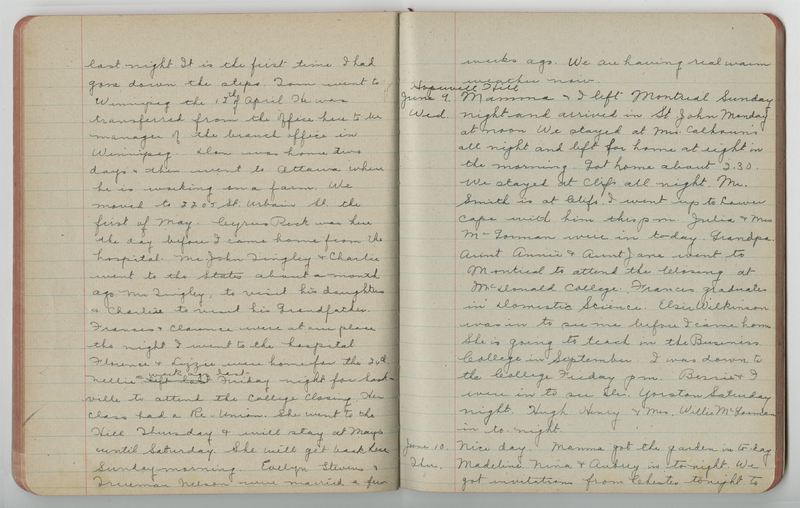 last night It is the first time I had
gone down the steps. Tom went to
Winnipeg the 12th of April He was
transferred from the office here to be
manager of the branch office in
Winnipeg Don was home two
days & then went to Ottawa where
he is working on a farm. We
moved to 2205 St. Urbain St. the
first of May. Cyrus Peck was here
the day before I came home from the
hospital. Mr. John Tingley & Charlie
went to the States about a month
ago Mr Tingley, to visit his daughters
& Charlie to visit his Grandfather.
Frances & Clarence were at our place
the night I went to the hospital
Florence & Lizzie were home for the 24th.
Nellie a week ago last Friday night for Sack-
ville to attend the College Closing. Her
class had a Re-Union. She went to the
Hill Thursday & will stay at May's
until Saturday. She will get back here
Sunday morning. Evelyn Stevens &
Trueman Nelson were married a few
weeks ago. We are having real warm
weather now.
Hopewell Hill
June 9. Mamma & I left Montreal Sunday
Wed. night and arrived in St John Monday
at noon We stayed at Mrs. Calhoun's
all night and left for home at eight in
the morning. Got home about 2.30.
We stayed at Clif's all night. Mr.
Smith is at Clif's. I went up to Lower
Cape with him this p.m. Julia & Mrs
McGorman were in to-day. Grandpa.
Aunt Annie & Aunt Jane went to
Montreal to attend the closing at
McDonald College. Frances graduates
in Domestic Science. Elsie Wilkinson
was in to see me before I came home
She is going to teach in the Business
College in September. I was down to
the College Friday p.m. Bessie & I
were in to see Dr. Yorston Saturday
night. Hugh Henry & Mrs. Willie McGorman
in to-night.
June 10. Nice day. Mamma got the garden in to-day
Thu. Madeline, Nina & Aubrey in to-night. We
got invitations from Celestes to night to